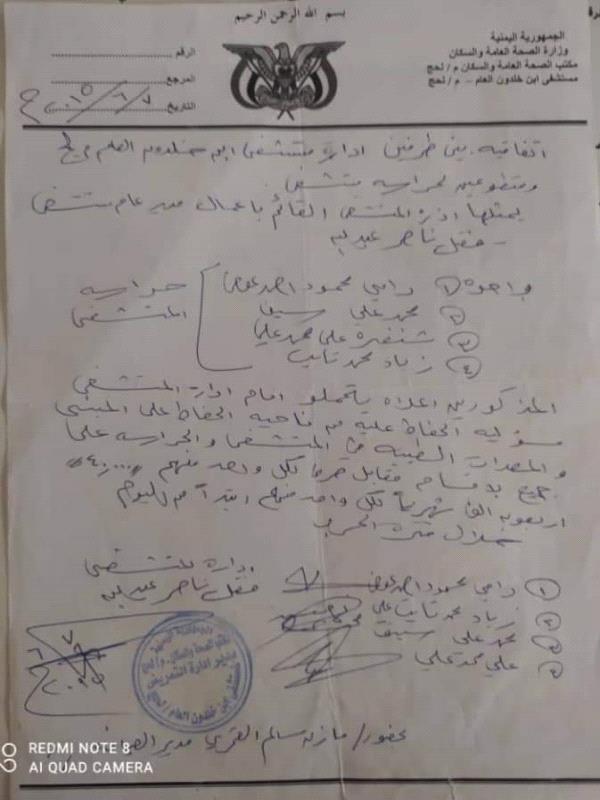 بسم الله الرحمن الرحيم
الجمهورية اليمنية
وزارة الصحة العامة والسكان
مكتب الصحة العامة والسكان م / لحج
مستشفى ابن خلدون العام - م / لحج
الرقم
المرجع
التاريخ ٧ / ٦ / ٢٠١٥
اتفاقيه بين طرفين ادارة مستشفى ابن خلدون العام
ومتطوعين لحراسه مستشفى
يمثلها ادارة المستشفى القائم باعمال مدير عام مستشفى
ناصر عبد
والاخوة ١) رامي محمود احمد عوض
٢) محمد علي سيف
٣) علي محمد علي
٤) زياد محمد ثابت
حراسه
المستشفى
المذكورين اعلاه يتحملو امام ادارة المستشفى
مسؤليه الحفاظ عليه من ناحيه الحفاظ على المبنى
و المعدات الطبيه في المستشفى والحراسه على
جميع الاقسام مقابل صرف لكل واحد منهم
اربعون الف شهرياً لكل واحد منهم ابتدآ من اليوم
خلال فترة الحرب
ادارة المستشفى
ناصر عبد
١) رامي محمود احمد عوض
٢) زياد محمد ثابت علي
٣) محمد علي سيف
علي محمد علي
بحضور / مازن سالم مدير
REDMI NOTE 8
AI QUAD CAMERA